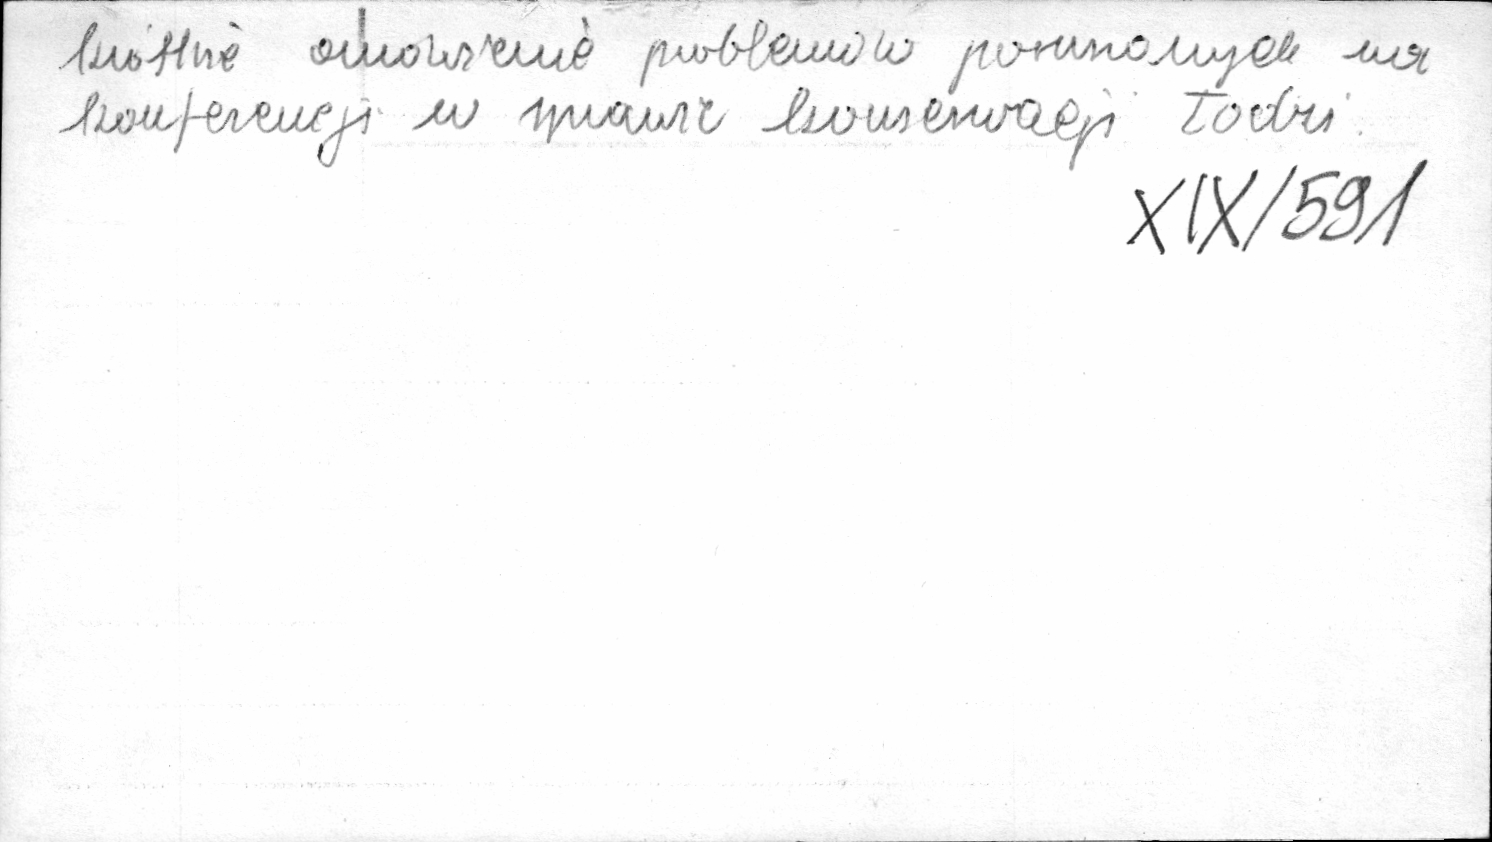 krótkie omówienie problemów poruszonych na
konferencji w sprawie konserwacji łodzi.
XIX/591